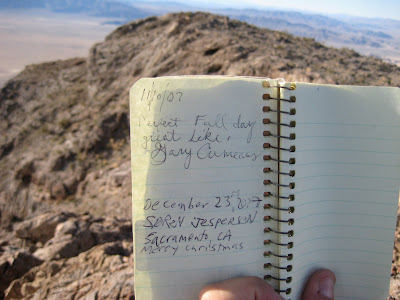 11/10/07
Perfect Fall day
great hike.
Gary
December 23rd, 2007
Jesperson
Sacramento, CA
Merry Christmas